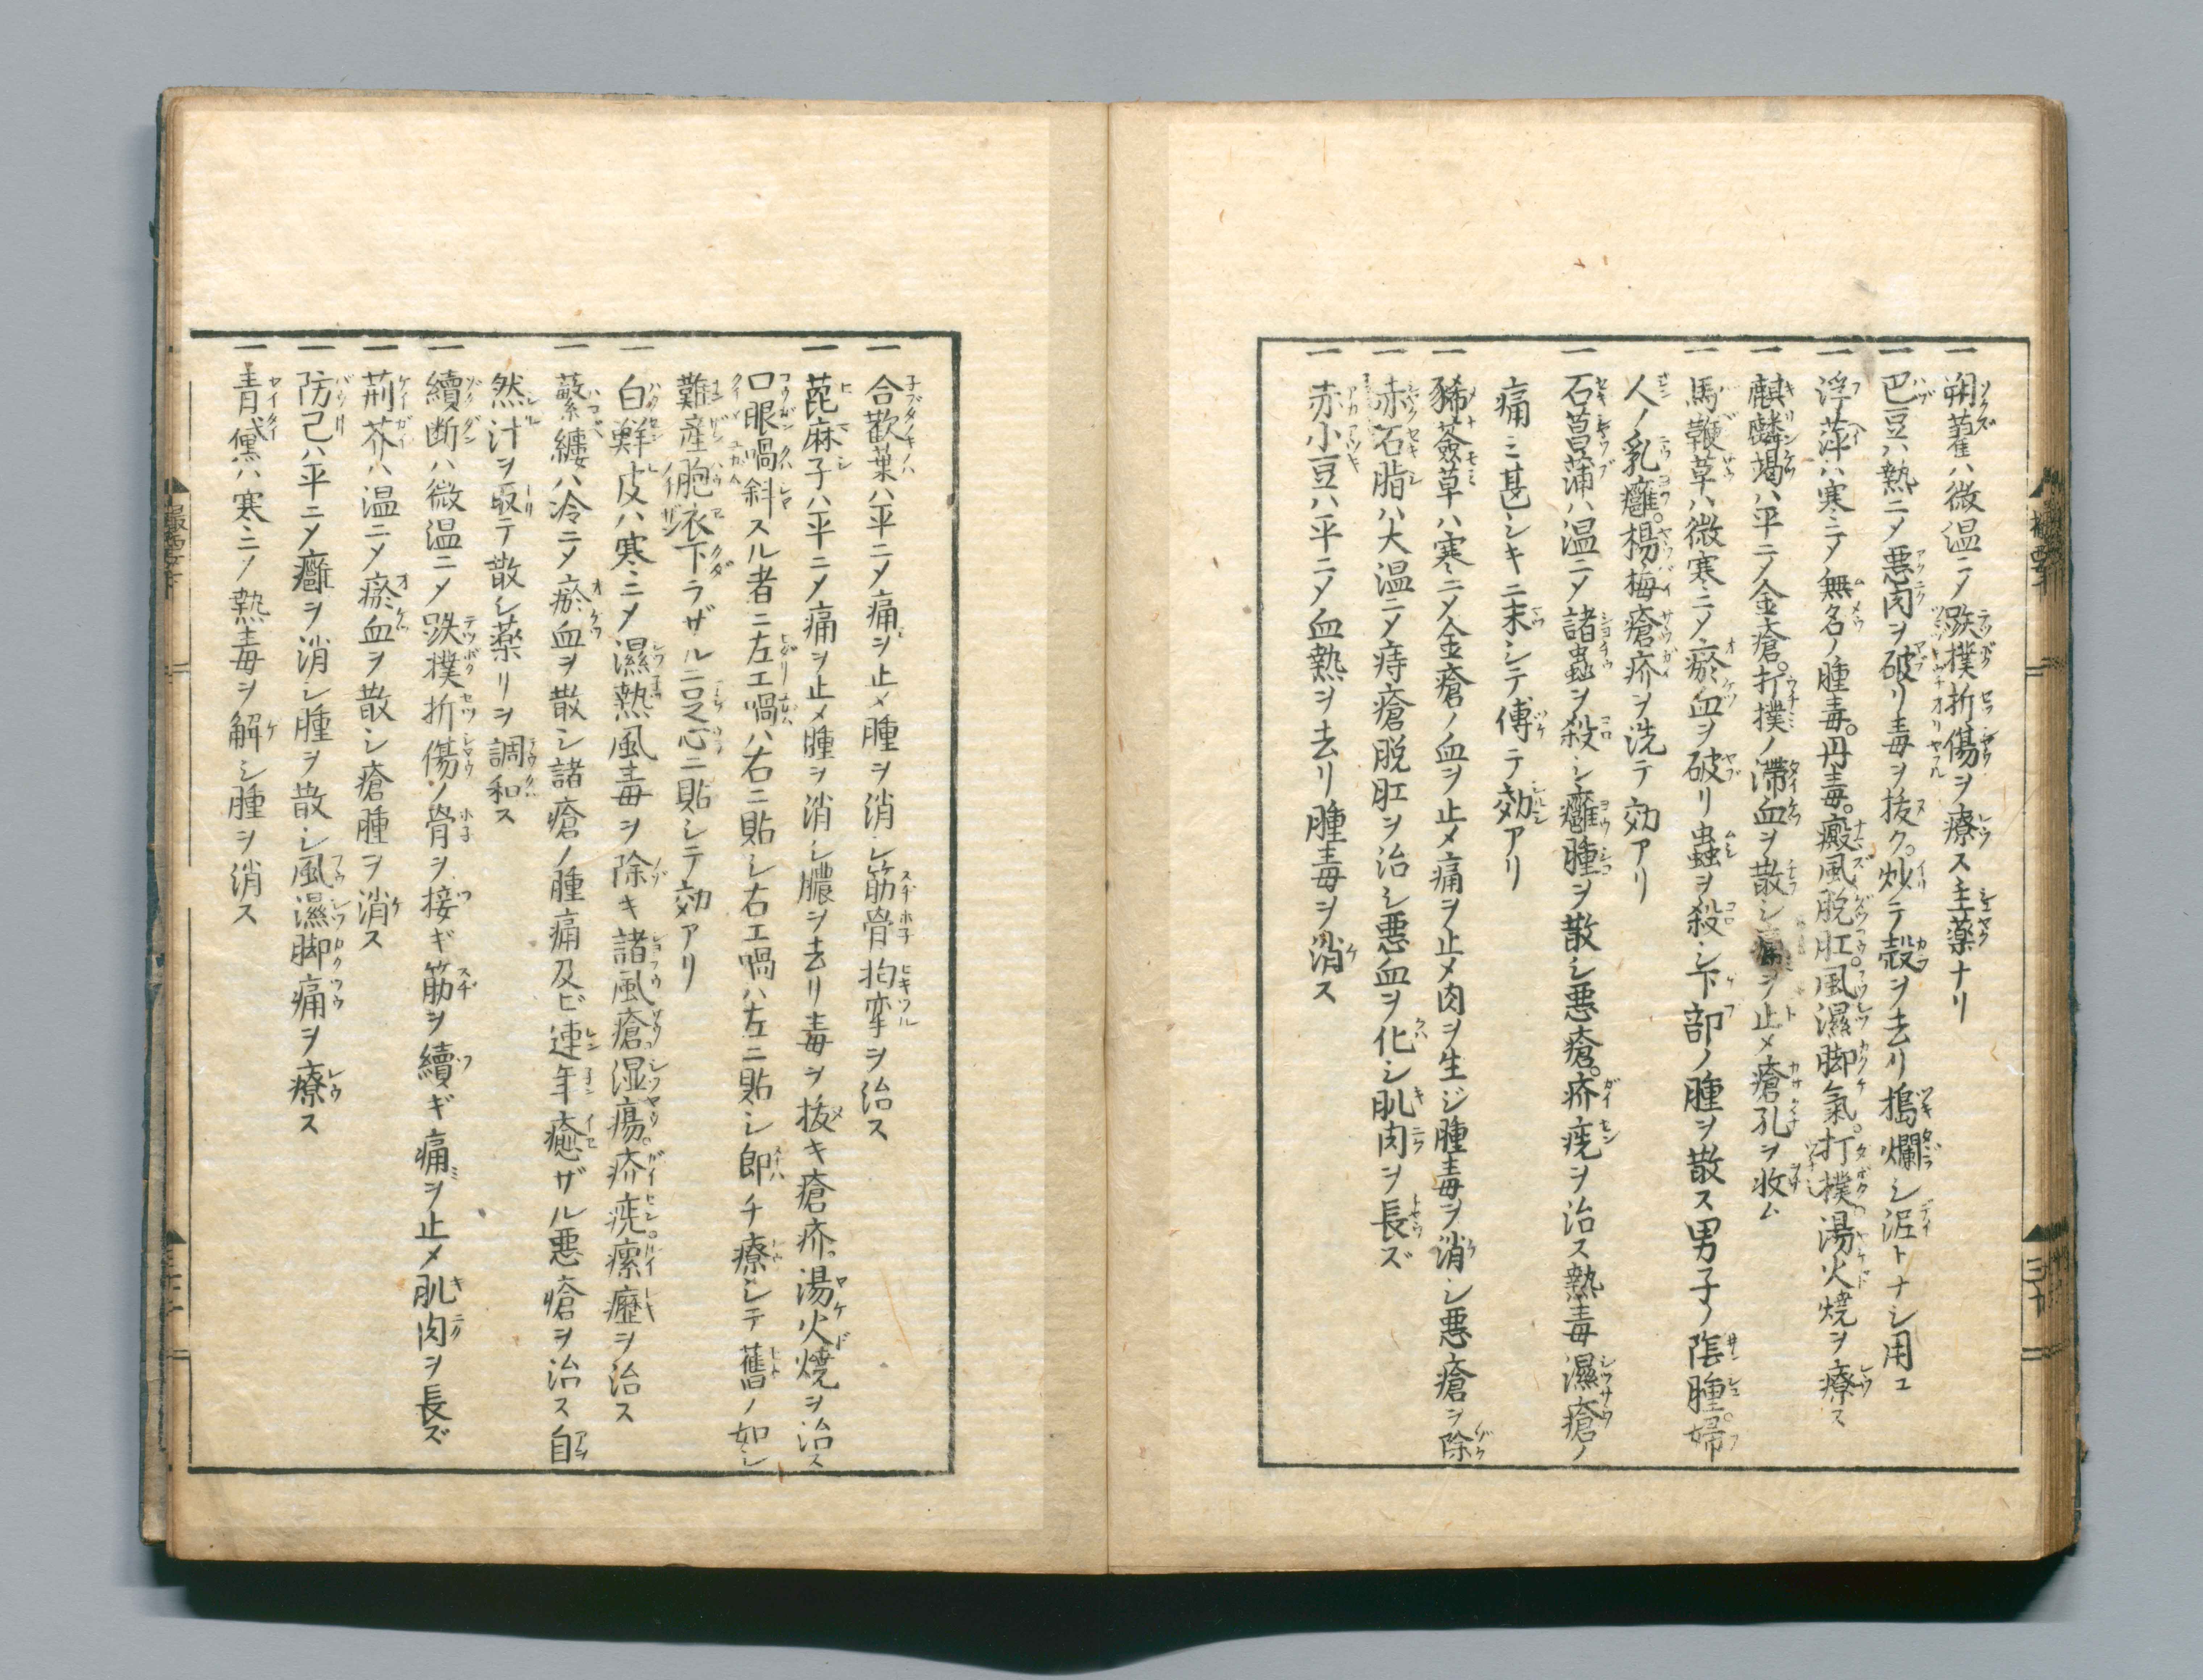 一 蒴藋ハ微温ニメ跌撲折傷ヲ療ス主薬ナリ
一 巴豆ハ熱ニメ悪肉ヲ破リ毒ヲ抜ク。炒テ殻ヲ去リ搗爛シ泥トナシ用ユ
一 浮萍ハ寒ニメ無名ノ腫毒。丹毒。癜風脱肛。風濕脚氣。打撲湯火焼ヲ療ス
一 麒麟竭ハ平ニメ金瘡。打撲ノ滞血ヲ散シ痛ヲ止メ瘡孔ヲ收ム
一 馬鞭草ハ微寒ニメ瘀血ヲ破リ蟲ヲ殺シ下部ノ腫ヲ散ス男子ノ陰腫。婦
人ノ乳癰。楊梅瘡疥ヲ洗テ効アリ
一 石菖蒲ハ温ニメ諸蟲ヲ殺シ癰腫ヲ散シ悪瘡。疥疣ヲ治ス熱毒濕瘡ノ
痛ミ甚シキニ末シテ傅テ効アリ
一 豨薟草ハ寒ニメ金瘡ノ血ヲ止メ痛ヲ止メ肉ヲ生ジ腫毒ヲ消シ悪瘡ヲ除
一 赤石脂ハ大温ニメ痔瘡脱肛ヲ治シ悪血ヲ化シ肌肉ヲ長ズ
一 赤小豆ハ平ニメ血熱ヲ去リ腫毒ヲ消ス
一 合歓葉ハ平ニメ痛ヲ止メ腫ヲ消シ筋骨拘攣ヲ治ス
一 萞麻子ハ平ニメ痛ヲ止メ腫ヲ消シ膿ヲ去リ毒ヲ抜キ瘡疥。湯火焼ヲ治ス
口眼喎斜スル者ニ左エ喎ハ右ニ貼シ右エ喎ハ左ニ貼シ即チ療シテ舊ノ如シ
難産胞衣下ラザルニ足心ニ貼シテ効アリ
一 白鮮皮ハ寒ニメ濕熱風毒ヲ除キ諸風瘡湿瘍。疥疣。瘰癧ヲ治ス
一 蘩縷ハ冷ニメ瘀血ヲ散シ諸瘡ノ腫痛及ビ連年癒ザル悪瘡ヲ治ス自
然汁ヲ取テ散シ薬リヲ調和ス
一 續断ハ微温ニメ跌撲折傷ノ骨ヲ接ギ筋ヲ續ギ痛ヲ止メ肌肉ヲ長ズ
一 荊芥ハ温ニメ瘀血ヲ散シ瘡腫ヲ消ス
一 防己ハ平ニメ癰ヲ消シ腫ヲ散シ風濕脚痛ヲ療ス
一 青黛ハ寒ニメ熱毒ヲ解シ腫ヲ消ス